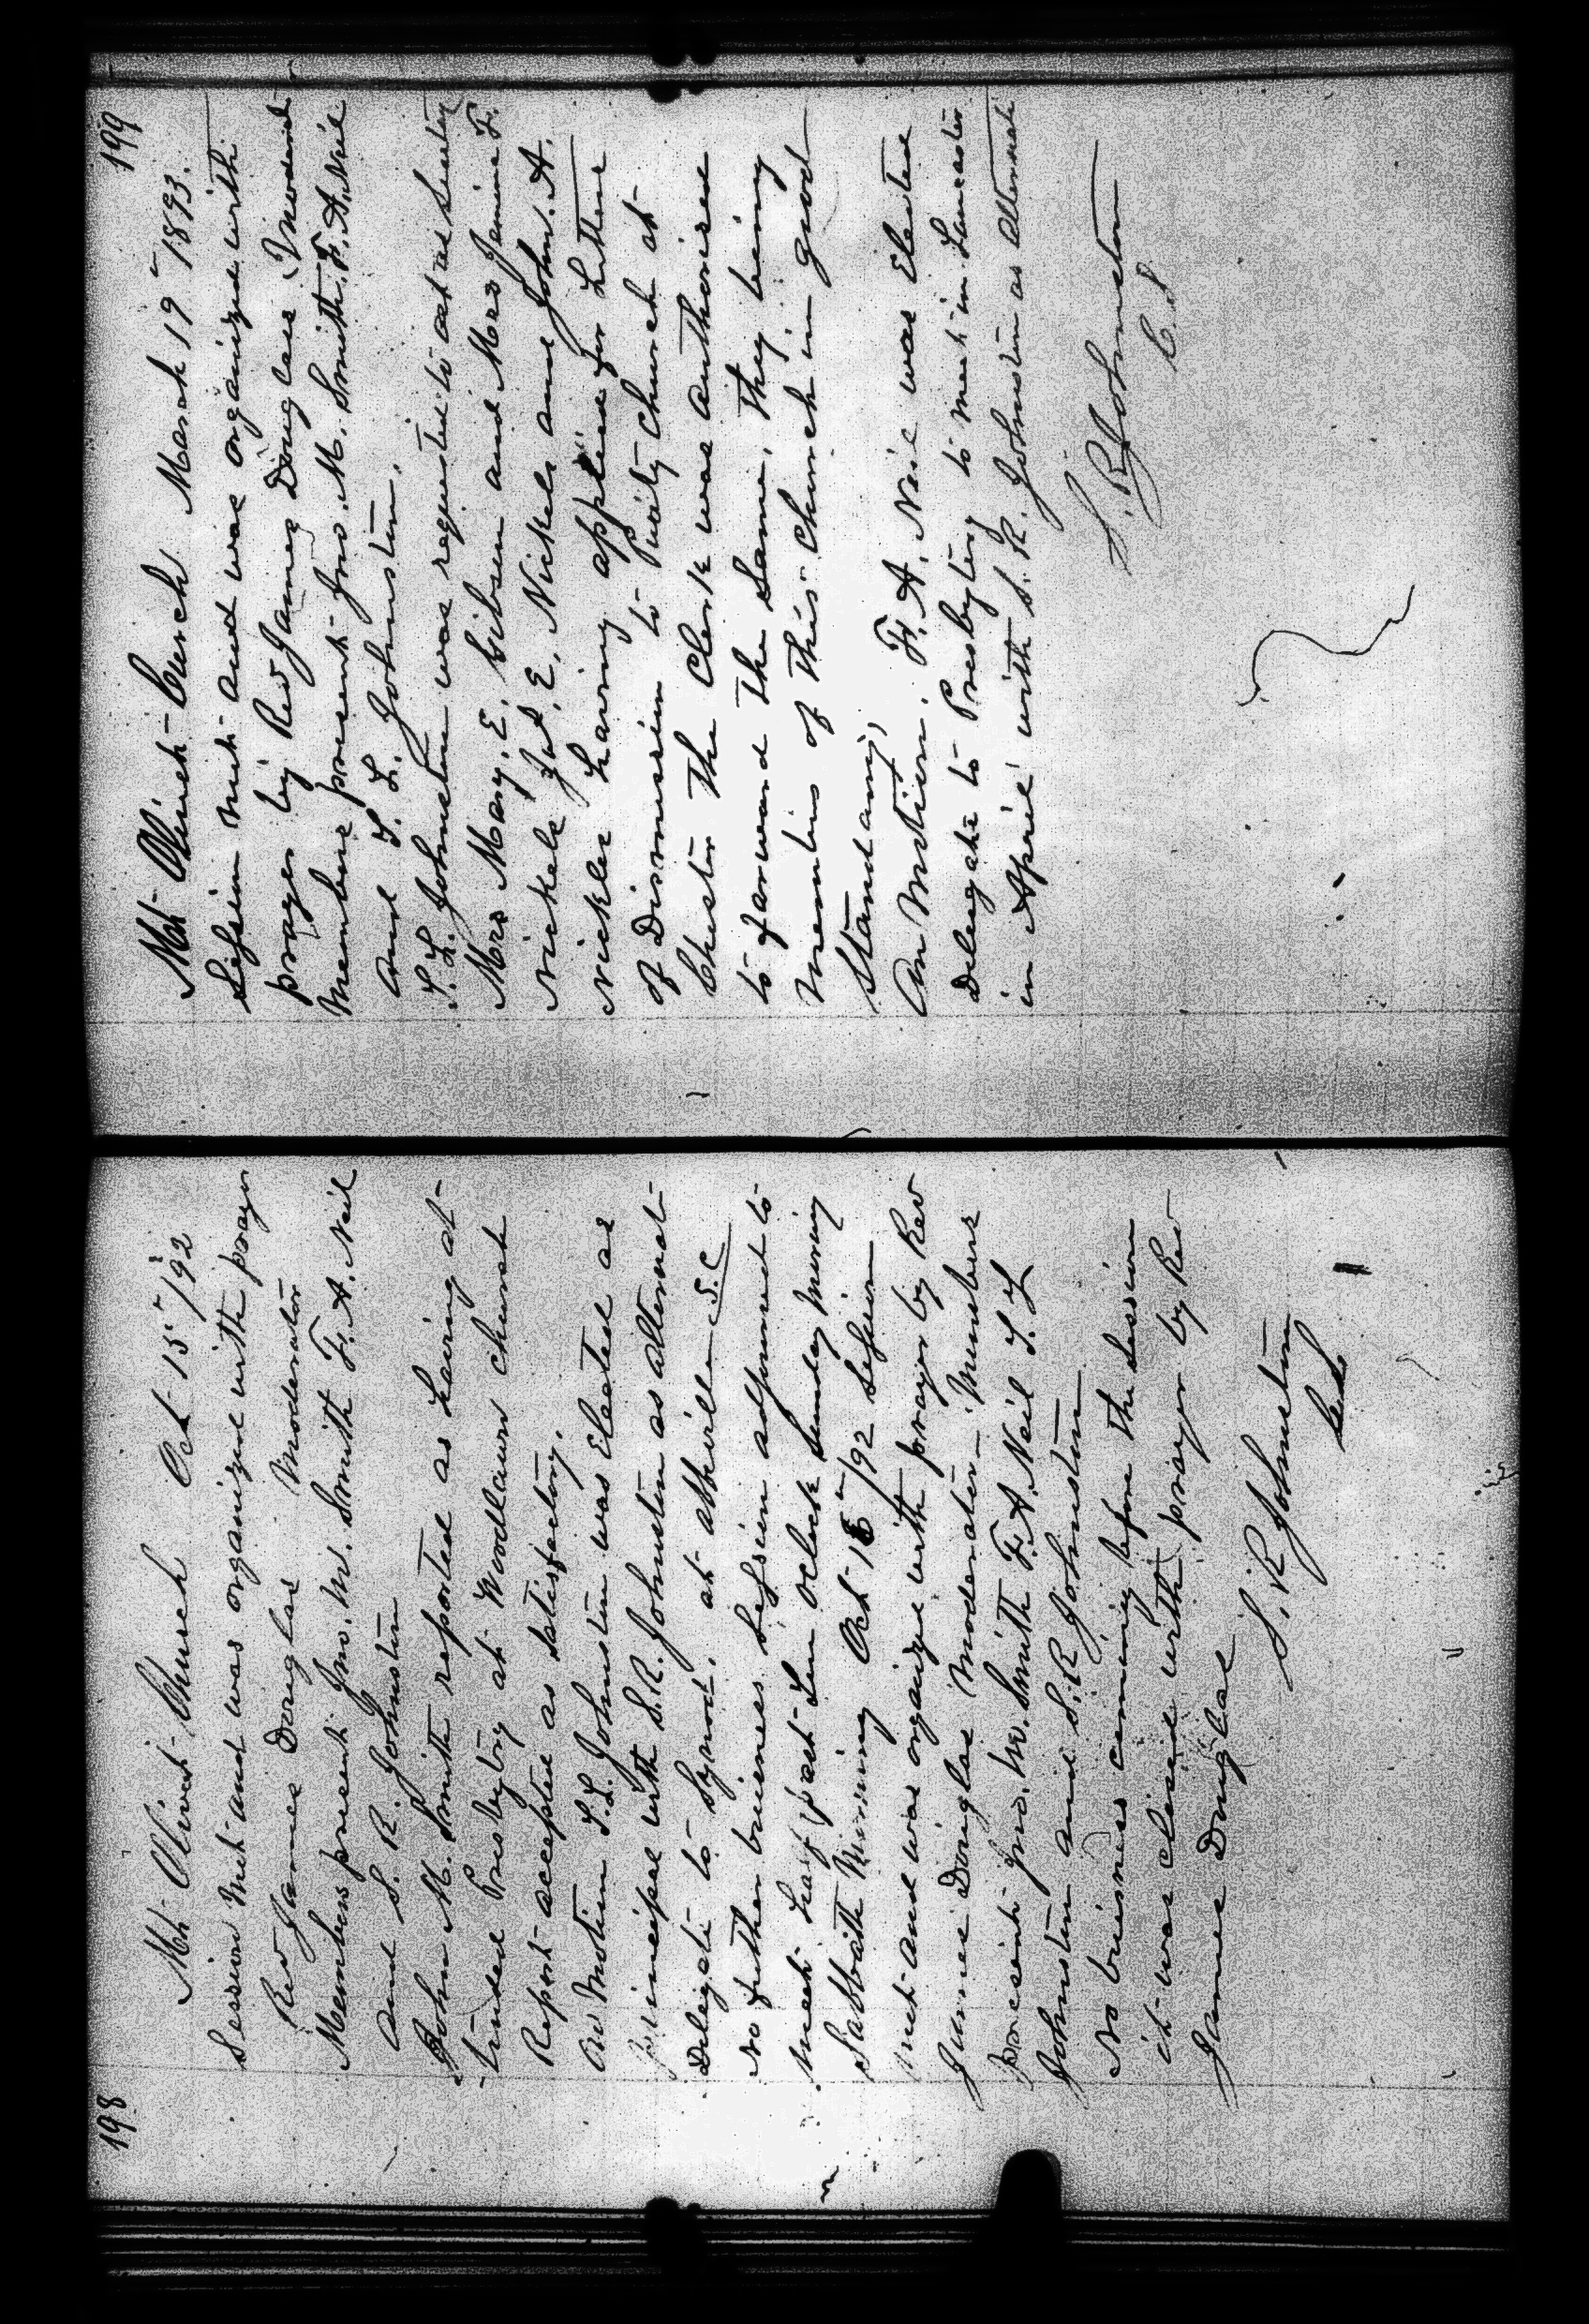 198
Mt Olivet Church Oct 15"/92
Session Met and was organized with prayer
Rev James Douglas Moderator
Members present Jno. M. Smith F. A. Neil
and S. R. Johnston
John M. Smith reported as having at-
-tended Presbytry at Woodlawn church
Report accepted as satisfactory.
On Motion S. L. Johnston was Elected as
principal with S. R. Johnston as alternate
Delegate to Synod. at Abbeville S. C
No futher business Session adjourned to
meet half past Ten Oclock Sunday Morning
Sabbath Morning Oct 16"/92 Session
met and was organized with prayer by Rev
James Douglas Moderator - Members
present Jno. M. Smith F. A. Neil S. L
Johnston and S. R Johnston
No business coming before the Session
it was closed with prayer by Rev
James Douglas
S. R Johnston
199
Mt Olivet Curch March 19" 1893.
Session met and was organized with
prayer by Rev James Douglas Moderator
Members present Jno. M. Smith. F. A. Neil
and S. L. Johnston.
S. L. Johnston was requested to act as Secretary
Mrs Mary. E. Gibson and Mrs Jamima F.
Nickels E. Nickels and John. A.
Nickles having applied for Letters
of Dismission to Purity Church at
Chester The Clerk was authorised
to forward the Same, They being
members of This Church in good
Standing,
On Motion. F. A. Neil was Elected
Delegate to Presbytery to meet in Lancaster
in April with S. R. Johnston as alternate
S. R Johnston
C. S